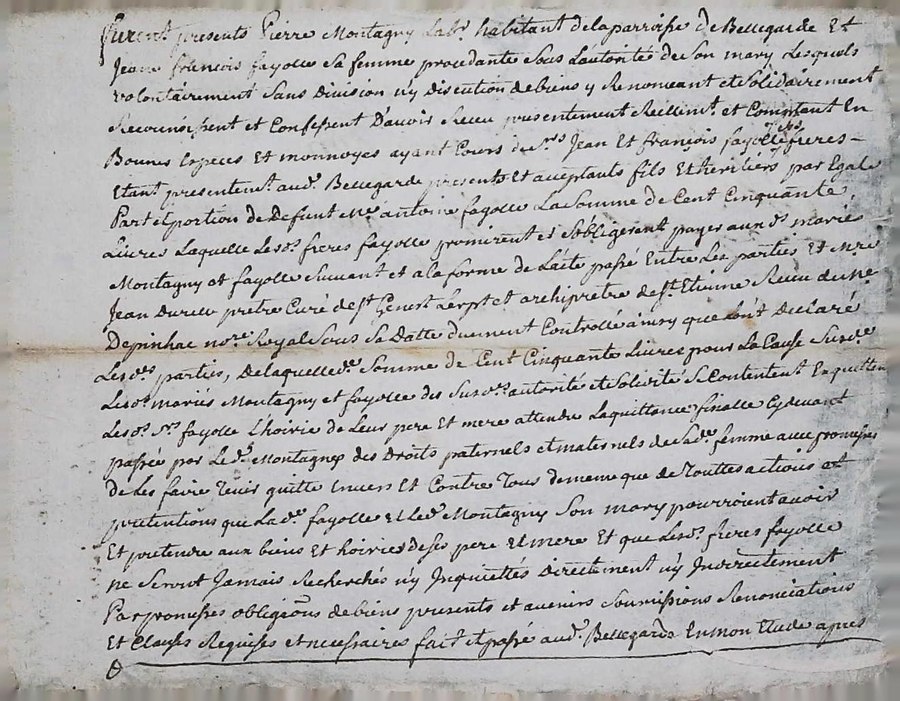 furent presents Pierre Montagny Labr. habitant delaparroisse de Bellegarde Et
Jeane francois fayolle Sa femme procedante Sous Lautorité de Son mary Lesquels
volontairement Sans Division n'y Discution debiens y Renonceant et Solidairement
Reconnoissent et Confessent D'avoir Receu presentement Reellemt. et Comptant En
Bonnes Especes Et monnoyes ayant Cours de Srs Jean Et francois fayolle freres
Etant presentemt. aud. Bellegarde presents et aceptants fils Et heritiers par Egale
Part et portion de defunt Me antoine fayolle La Somme de Cent Cinquante
Livres Laquelle Lesds. freres fayolle promirent et S'obligerent payer aux ds. mariés
Montagny et fayolle Suivant et a la forme de Lacte passé Entre Les parties Et Mre
Jean pretre Curé de St Genest Lerpt et archipretre de St Etienne Receu du Me
Depinhac nore. Royal Sous Sa Datte duement Controllé ainsy que L'ont Declaré
Lesdes. parties, De laquelle de. Somme de Cent Cinquante Livres pour La Cause Susde.
Lesds. mariés Montagny et fayolle des Susds. autorité et Solidité Se Contentent En quittent
Lesds. Srs fayolle L'hoirie de Leur pere Et mere attendu La quittance finalle Cydevant
passée par Led. Montagny des Droits paternels et maternels de Lade. femme avec promesses
de Les faire tenir quitte Envers Et Contre Tous de meme que de Touttes actions et
pretentions que Lade. fayolle et Led. Montagny Son mary pourroient avoir
Et pretendre aux biens Et hoiries de Ses pere Et mere Et que Lesds. freres fayolle
ne Seront Jamais Recherchés n'y Inquiettes Directement n'y Indirectement
Par promesses obligeons debiens presents et avenirs Soumissions Renonciations
Et Clauses Requises et necessaires fait et passé aud. Bellegarde En mon Etude apres